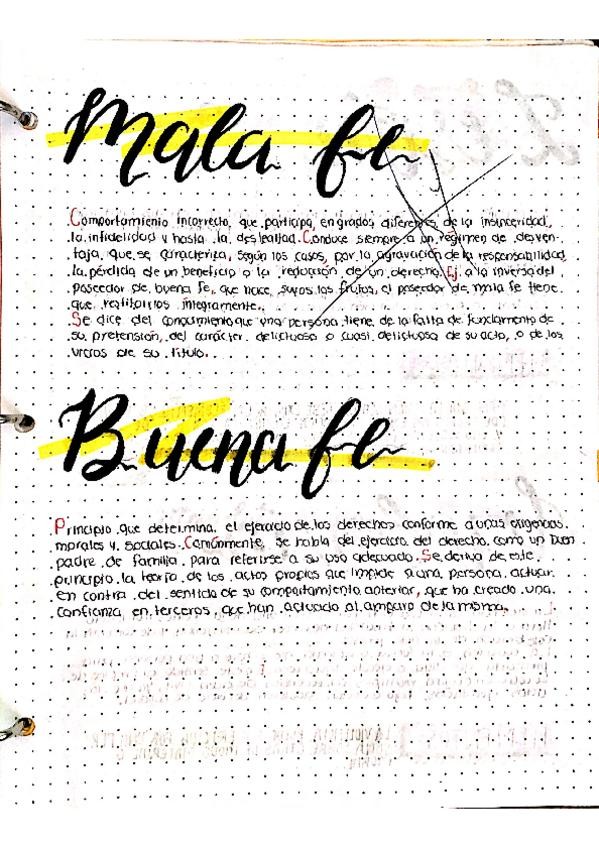 Mala fe
Comportamiento incorrecto, que participa, en grados diferentes de la insinceridad,
la infidelidad y hasta la deslealtad. Conduce siempre a un régimen de desven-
taja, que se caracteriza, según los casos, por la agravación de la responsabilidad,
la pérdida de un beneficio o la reducción de un derecho. Ej. a la inversa del
poseedor de buena fe, que hace suyos los frutos, el poseedor de mala fe tiene
que restituirlos íntegramente.
Se dice del conocimiento que una persona tiene de la falta de fundamento de
su pretensión, del carácter delictuoso o cuasi delictuoso de su acto, o de los
vicios de su título.
Buena fe
Principio que determina el ejercicio de los derechos conforme a unas exigencias
morales y sociales. Comúnmente, se habla del ejercicio del derecho como un buen
padre de familia para referirse a su uso adecuado. Se deriva de este
principio la teoría de los actos propios que impide a una persona actuar
en contra del sentido de su comportamiento anterior, que ha creado una
confianza en terceros que han actuado al amparo de la misma.